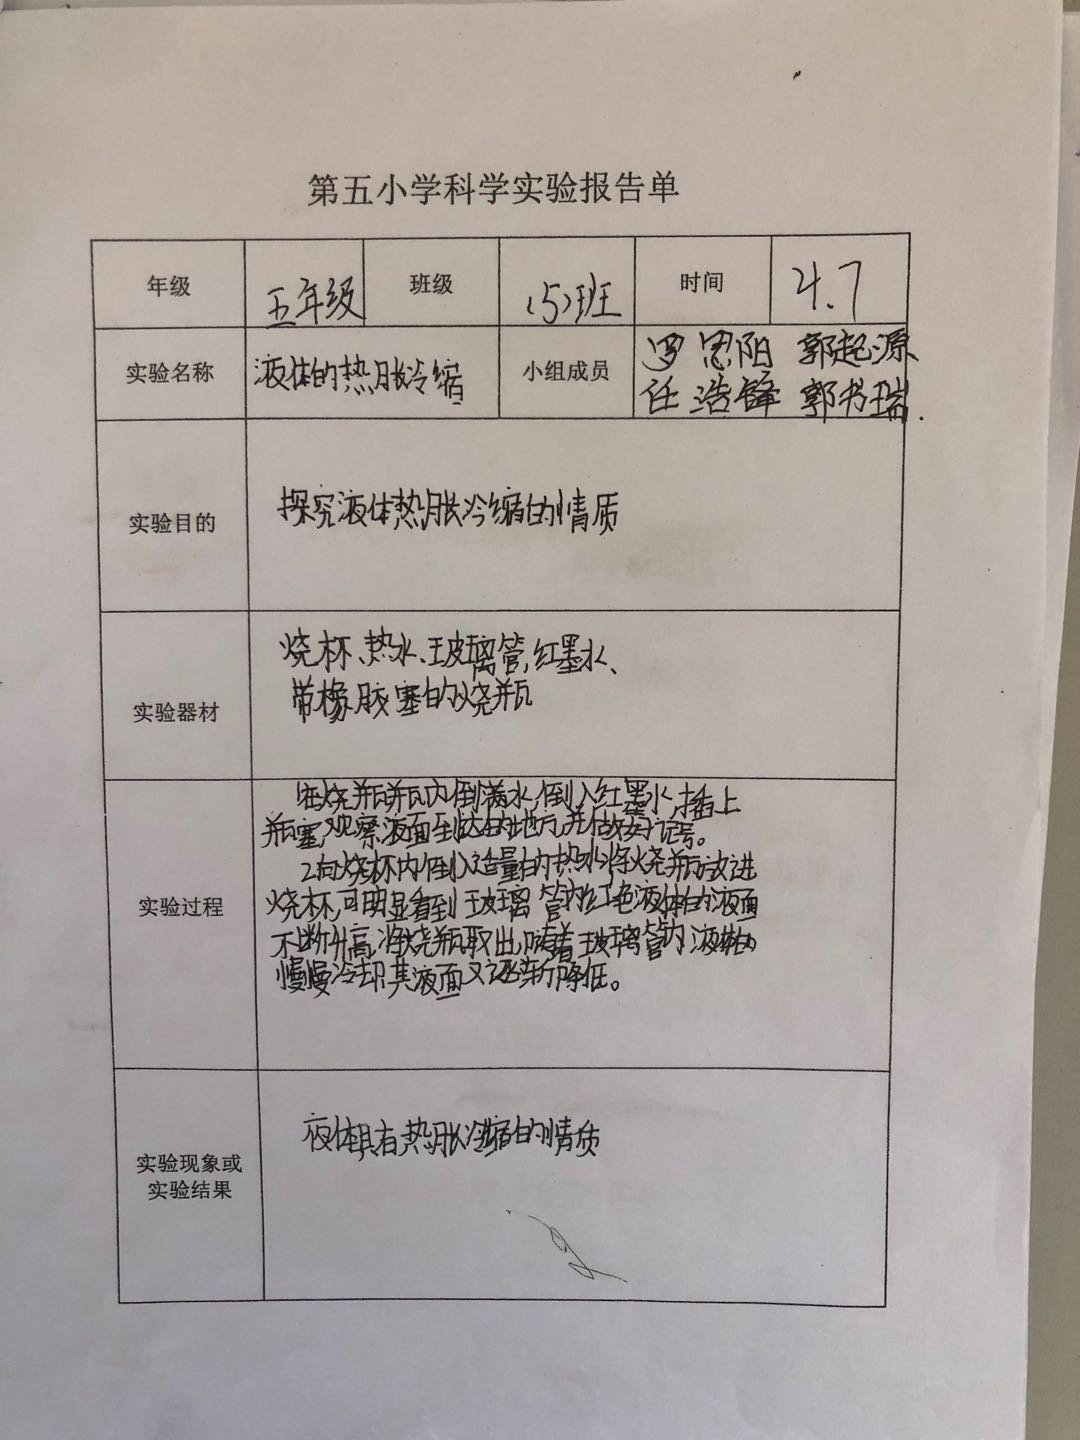 第五小学科学实验报告单
年级 五年级 班级 (5)班 时间 4.7
实验名称 液体的热胀冷缩 小组成员 罗思阳 郭起源
任浩锋 郭书瑞.
实验目的 探究液体热胀冷缩的情质
实验器材 烧杯、热水、玻璃管、红墨水、
带橡胶塞的烧瓶
实验过程 1.在烧瓶瓶内倒满水,倒入红墨水,插上
瓶塞,观察液面到达的地方,并做好记号。
2.向烧杯内倒入适量的热水,将烧瓶放进
烧杯,可明显看到玻璃管内红色液体的液面
不断升高,将烧瓶取出,随着玻璃管内液体的
慢慢冷却,其液面又逐渐降低。
实验现象或
实验结果 液体具有热胀冷缩的情质